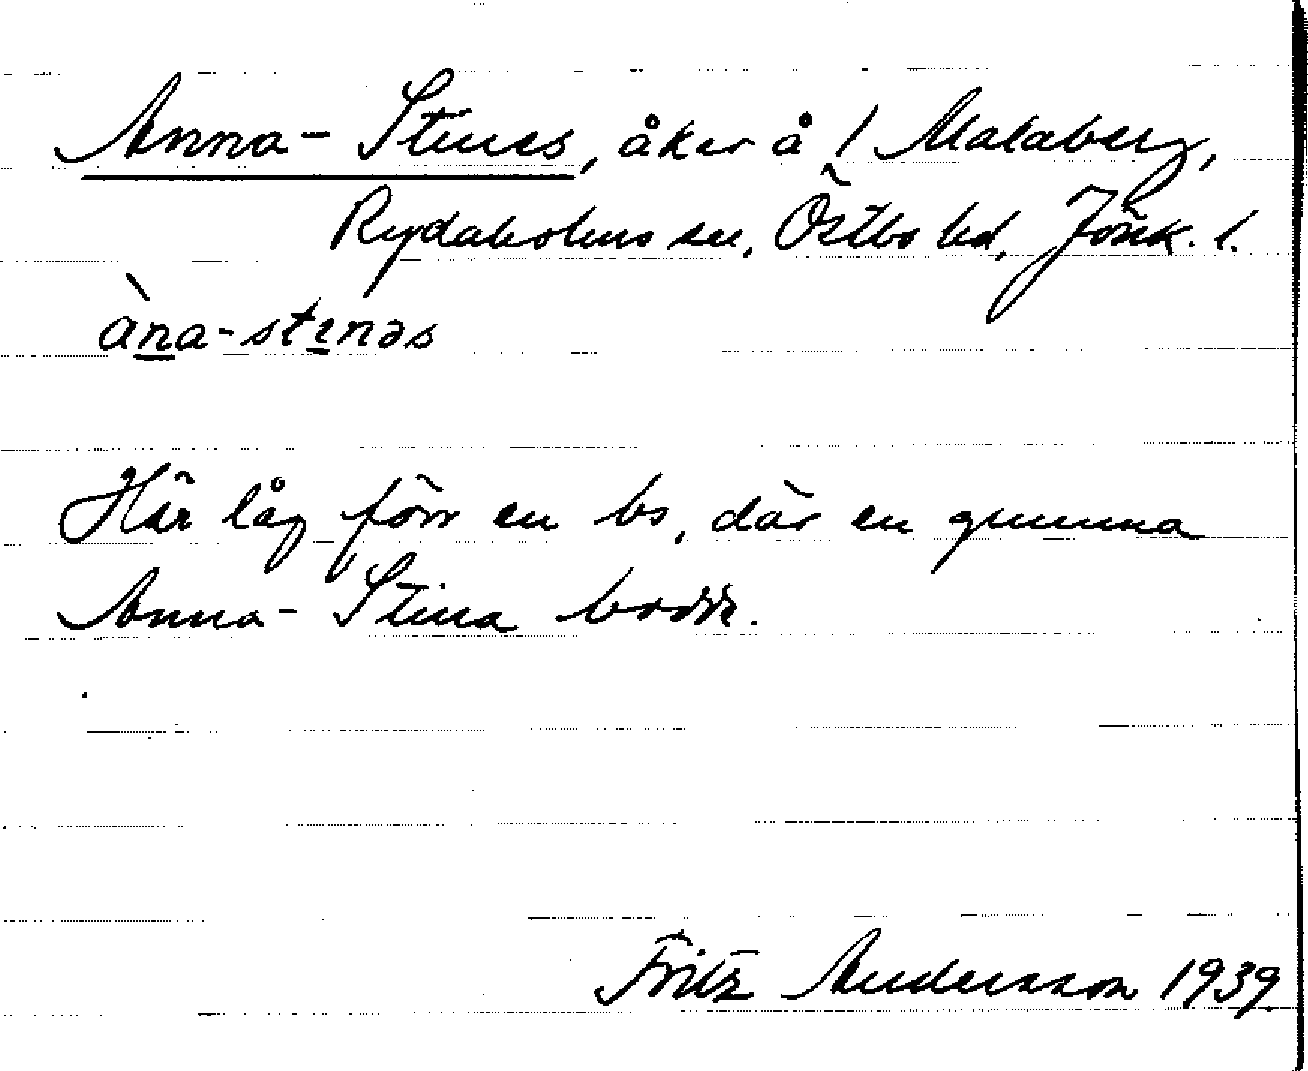 Anna-Stines, åker å 1 Malaberg,
Rydaholms sn, Östbo hd, Jönk. l.
àna-stɪnəs
Här låg förr en bs, där en gumma
Anna-Stina bodde.
Fritz Andersson 1939